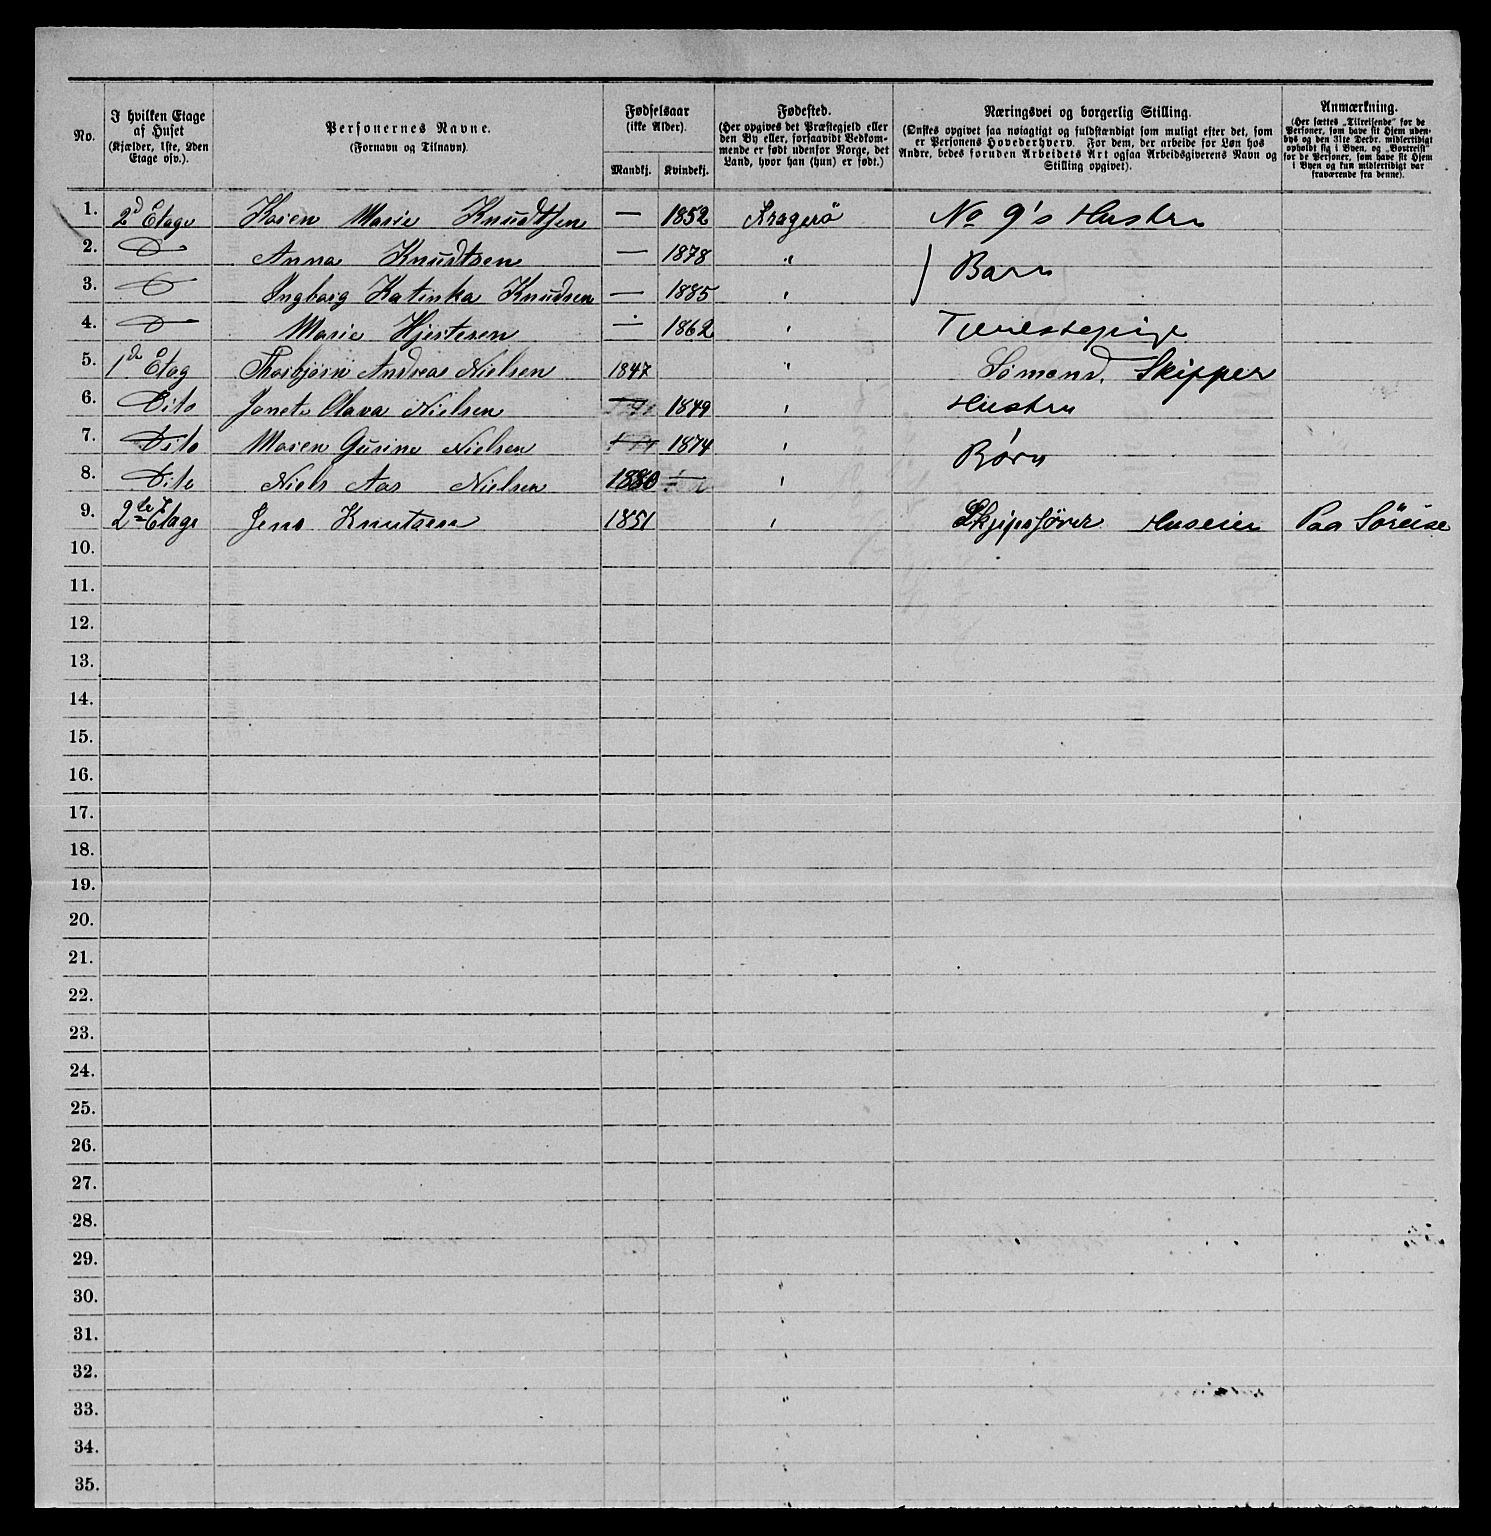 No.
I hvilken Etage af Huset
(Kjælder, 1ste, 2den Etage osv.).
Personernes Navne.
(Fornavn og Tilnavn).
Fødselsaar
(ikke Alder).
Mandkj. Kvindekj.
Fødested.
(Her opgives det Præstegjeld eller
den By eller, forsaavidt Vedkom-
mende er født udenfor Norge, det
Land, hvor han (hun) er født.)
Næringsvei og borgerlig Stilling.
(Ønskes opgivet saa nøiagtigt og fuldstændigt som muligt efter det, som
er Personens Hovederhverv. For dem, der arbeide for Løn hos
Andre, bedes foruden Arbeidets Art ogsaa Arbeidsgiverens Navn og
Stilling opgivet).
Anmærkning.
(Her sættes „Tilreisende" for de
Personer, som have sit Hjem uden-
bys og den 31te Decbr. midlertidigt
opholdt sig i Byen, og „Bortreist"
for de Personer, som have sit Hjem
i Byen og kun midlertidigt var
fraværende fra denne).
1. 2d Etage Karen Marie Knudtsen — 1852 Kragerö No 9's Hustru
2. D Anna Knudtsen — 1878 " } Barn
3. D Ingborg Katinka Knudsen — 1885 "
4. D Marie Hjertesen — 1862 " Tjenestepige
5. 1de Etag Thorbjørn Andreas Nielsen 1847 " Sømand, Skipper
6. Dito Janete Olava Nielsen 1849 " Hustru
7. Dito Maren Gusine Nielsen 1874 " Børn
8. Dito Niels Aas Nielsen 1880 — "
9. 2de Etage Jens Knutsen 1851 " Skjipsfører Huseier Paa Søreise
10.
11.
12.
13.
14.
15.
16.
17.
18.
19.
20.
21.
22.
23.
24.
25.
26.
27.
28.
29.
30.
31.
32.
33.
34.
35.